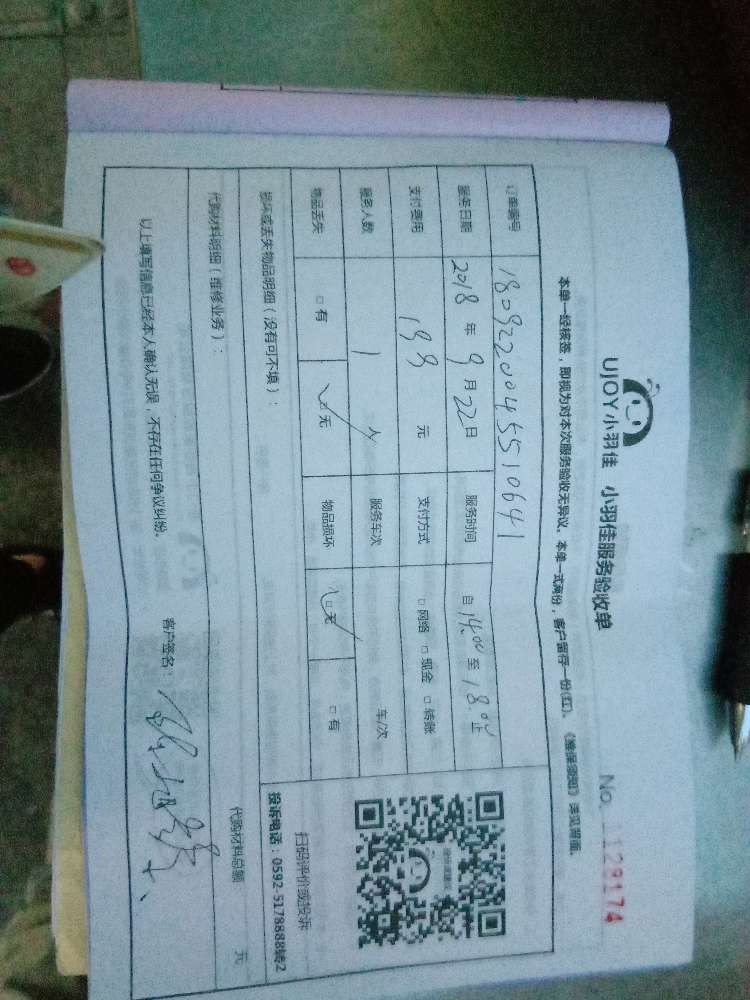 UJOY小羽佳 小羽佳服务验收单
No. 1129174
本单一经核签，即视为对本次服务验收无异议，本单一式两份，客户留存一份(红)。《维保须知》详见背面。
订单编号 1809220045510641
服务日期 2018年9月22日 服务时间 自14:00至18:00止
支付费用 元 支付方式 □网络 □现金 □转账
服务人数 1人 服务车次 车/次
物品丢失 □有 □无 物品损坏 □无 □有
扫码评价或投诉
投诉电话：0592-5178888转2
损坏或丢失物品明细（没有可不填）：
代购材料明细（维修业务）： 代购材料总额 元
以上填写信息已经本人确认无误，不存在任何争议纠纷。 客户签名：